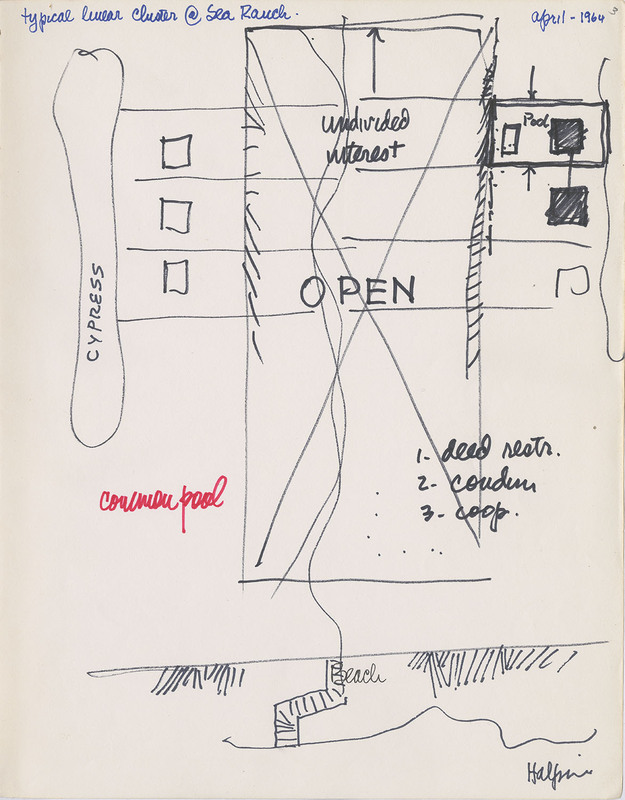 typical linear cluster @ Sea Ranch.
April - 1964
3
undivided
interest
Pool
OPEN
CYPRESS
1- deed restr.
2- condm
3- coop.
common pool
Beach
Halprin